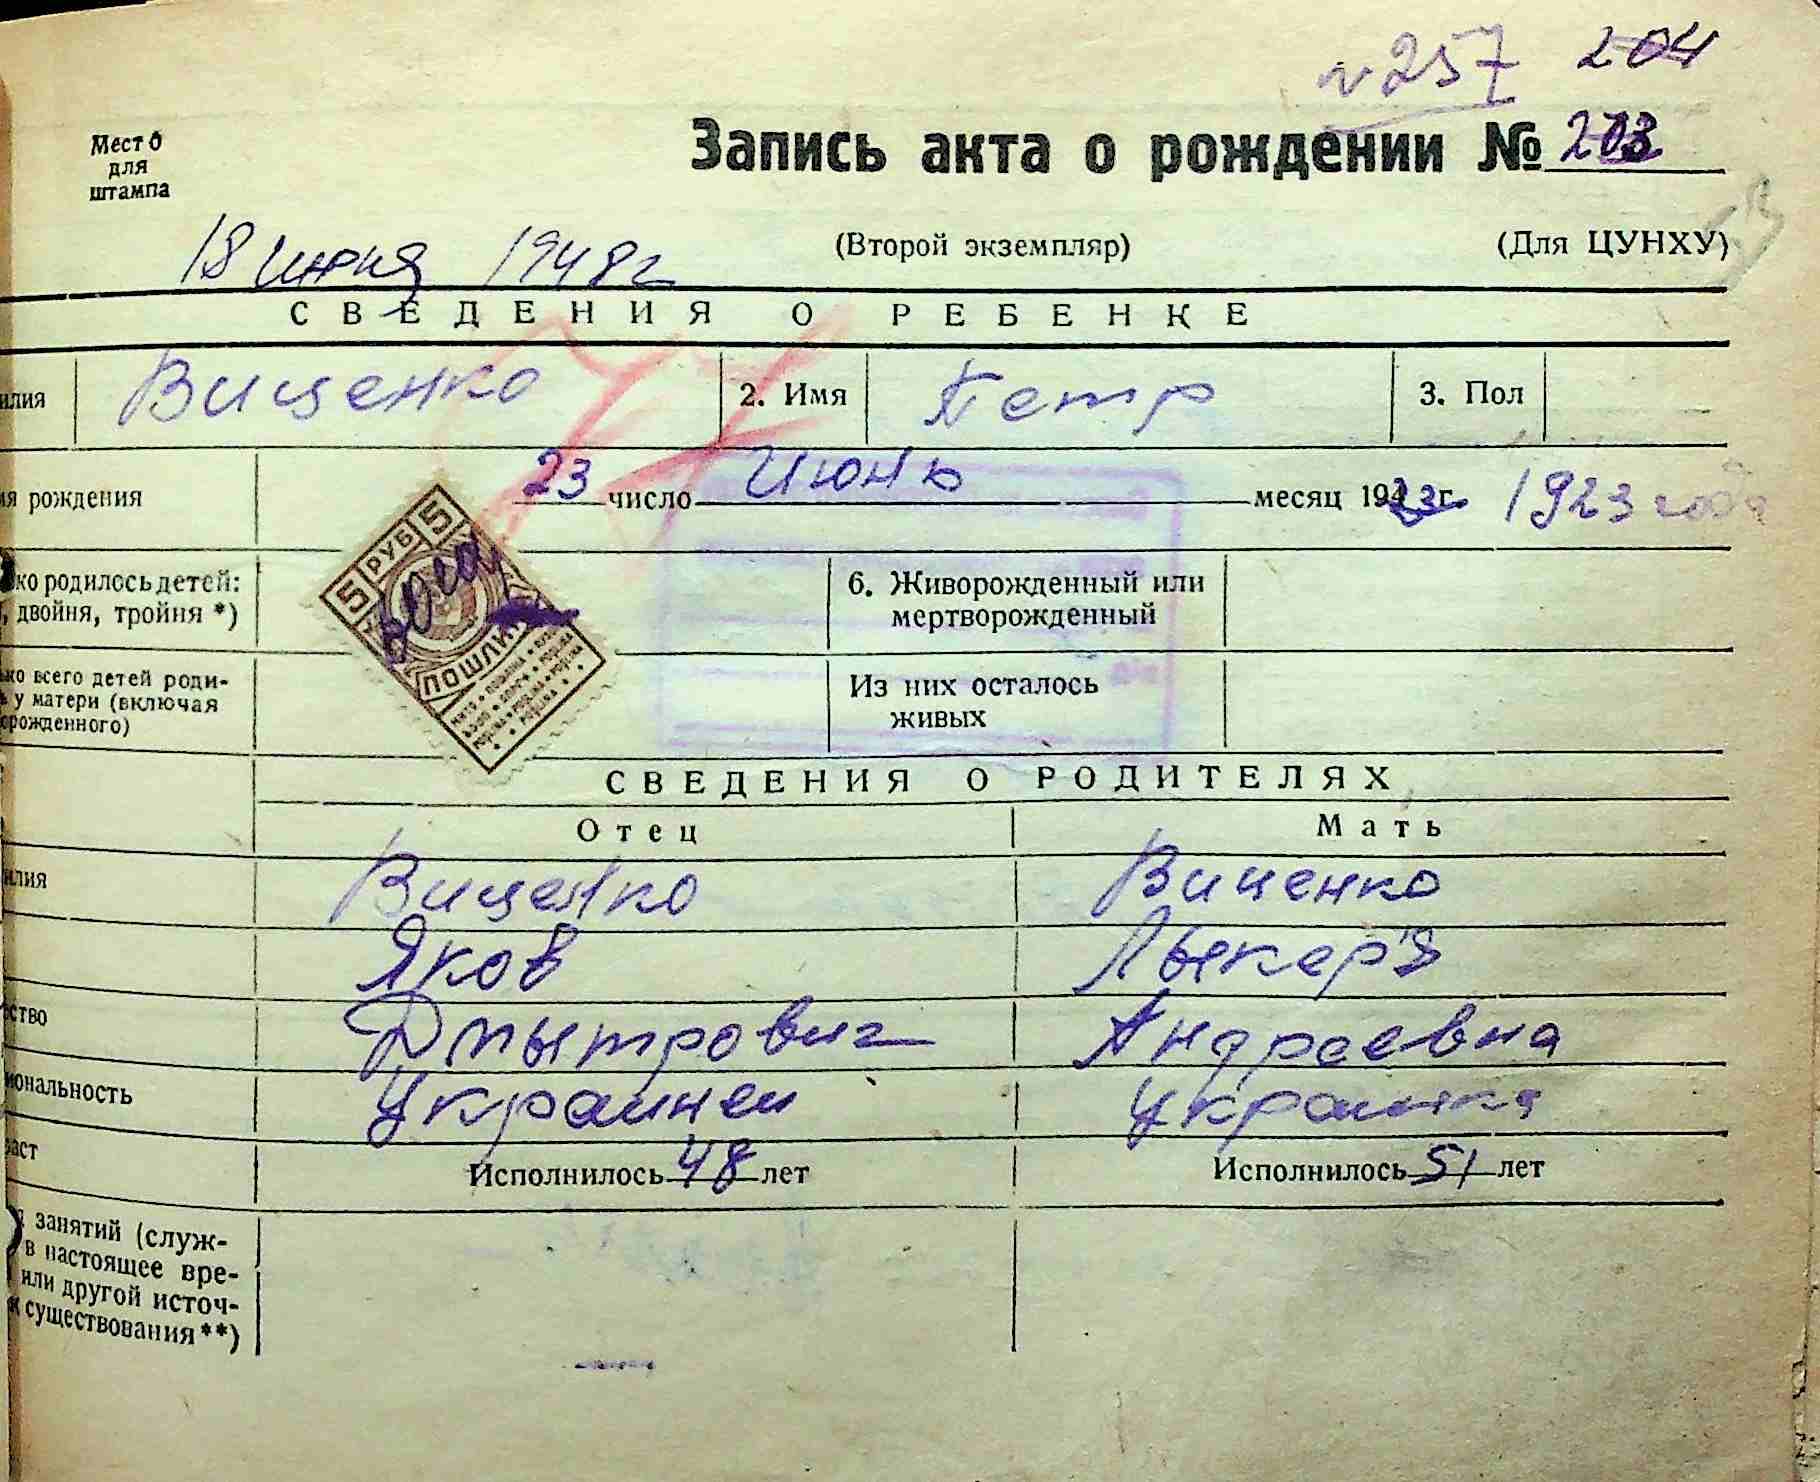 №257 204
Место
для
штампа
Запись акта о рождении № 203
18 июня 1948г
(Второй экземпляр) (Для ЦУНХУ)
СВЕДЕНИЯ О РЕБЕНКЕ
илия Виценко 2. Имя Петр 3. Пол
мя рождения 23 число Июнь месяц 1923 г. 1923 года
ко родилось детей:
, двойня, тройня *)
6. Живорожденный или
мертворожденный
5 РУБ 5
ПОШЛИ
ько всего детей роди-
ь у матери (включая
орожденного)
Из них осталось
живых
СВЕДЕНИЯ О РОДИТЕЛЯХ
Отец Мать
илия Виценко Виценко
Яков Лыкер'я
ество Дмытрович Андреевна
иональность Украинец Украинка
раст Исполнилось 48 лет Исполнилось 51 лет
занятий (служ-
в настоящее вре-
или другой источ-
к существования **)